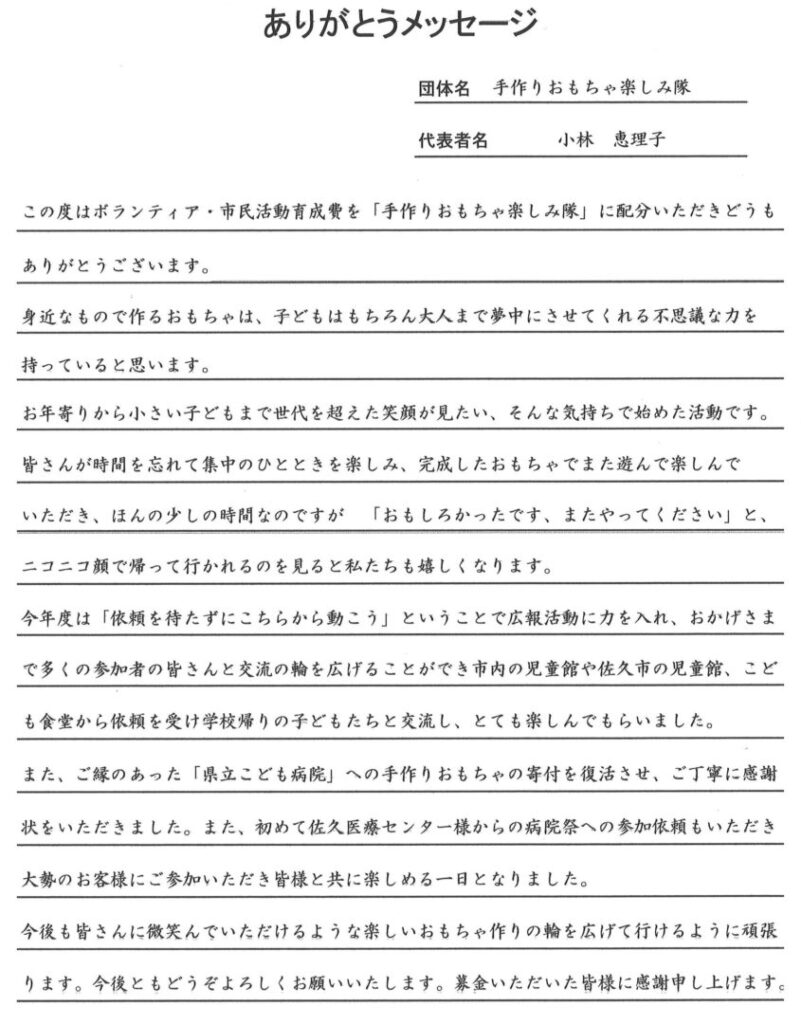 ありがとうメッセージ
団体名　手作りおもちゃ楽しみ隊
代表者名　小林　恵理子
この度はボランティア・市民活動育成費を「手作りおもちゃ楽しみ隊」に配分いただきどうも
ありがとうございます。
身近なもので作るおもちゃは、子どもはもちろん大人まで夢中にさせてくれる不思議な力を
持っていると思います。
お年寄りから小さい子どもまで世代を超えた笑顔が見たい、そんな気持ちで始めた活動です。
皆さんが時間を忘れて集中のひとときを楽しみ、完成したおもちゃでまた遊んで楽しんで
いただき、ほんの少しの時間なのですが　「おもしろかったです、またやってください」と、
ニコニコ顔で帰って行かれるのを見ると私たちも嬉しくなります。
今年度は「依頼を待たずにこちらから動こう」ということで広報活動に力を入れ、おかげさま
で多くの参加者の皆さんと交流の輪を広げることができ市内の児童館や佐久市の児童館、こど
も食堂から依頼を受け学校帰りの子どもたちと交流し、とても楽しんでもらいました。
また、ご縁のあった「県立こども病院」への手作りおもちゃの寄付を復活させ、ご丁寧に感謝
状をいただきました。また、初めて佐久医療センター様からの病院祭への参加依頼もいただき
大勢のお客様にご参加いただき皆様と共に楽しめる一日となりました。
今後も皆さんに微笑んでいただけるような楽しいおもちゃ作りの輪を広げて行けるように頑張
ります。今後ともどうぞよろしくお願いいたします。募金いただいた皆様に感謝申し上げます。